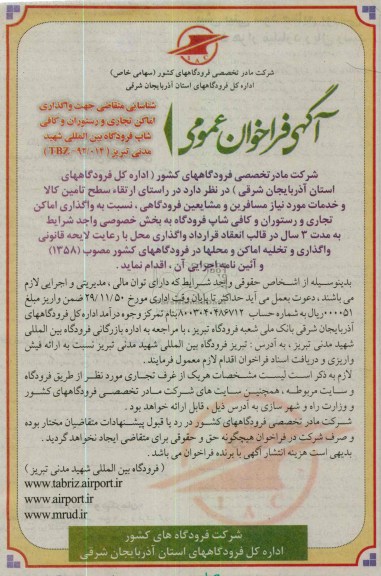 شرکت مادر تخصصی فرودگاههای کشور (سهامی خاص)
اداره کل فرودگاههای استان آذربایجان شرقی
آگهی فراخوان عمومی
شناسایی متقاضی جهت واگذاری
اماکن تجاری و رستوران و کافی
شاپ فرودگاه بین المللی شهید
مدنی تبریز ( TBZ - ۹۲/۰۱۴ )
شرکت مادرتخصصی فرودگاههای کشور ( اداره کل فرودگاههای
استان آذربایجان شرقی ) در نظر دارد در راستای ارتقاء سطح تامین کالا
و خدمات مورد نیاز مسافرین و مشایعین فرودگاهی ، نسبت به واگذاری اماکن
تجاری و رستوران و کافی شاپ فرودگاه به بخش خصوصی واجد شرایط
به مدت ۳ سال در قالب انعقاد قرارداد واگذاری محل با رعایت لایحه قانونی
واگذاری و تخلیه اماکن و محلها در فرودگاههای کشور مصوب (۱۳۵۸)
و آئین نامه اجرایی آن ، اقدام نماید .
بدینوسیله از اشخاص حقوقی واجد شرایط که دارای توان مالی ، مدیریتی و اجرایی لازم
می باشند ، دعوت بعمل می آید حداکثر تا پایان وقت اداری مورخ ۲۹/۱۱/۵۰ ضمن واریز مبلغ
۰۰۰۰۵۱ریال به شماره حساب ۸۰۰۳۰۴۰۴۸۶۷۱۲بنام تمرکز وجوه درآمد اداره کل فرودگاههای
آذربایجان شرقی بانک ملی شعبه فرودگاه تبریز ، با مراجعه به اداره بازرگانی فرودگاه بین المللی
شهید مدنی تبریز ، به آدرس : تبریز فرودگاه بین المللی شهید مدنی تبریز نسبت به ارائه فیش
واریزی و دریافت اسناد فراخوان اقدام لازم معمول فرمایند .
لازم به ذکر است لیست مشخصات هریک از غرف تجاری مورد نظر از طریق فرودگاه
و سایت مربوطه ، همچنین سایت های شرکت مادر تخصصی فرودگاههای کشور
و وزارت راه و شهر سازی به آدرس ذیل ، قابل ارائه خواهد بود .
شرکت مادر تخصصی فرودگاههای کشور در رد یا قبول پیشنهادات متقاضیان مختار بوده
و صرف شرکت در فراخوان هیچگونه حق و حقوقی برای متقاضی ایجاد نخواهد گردید .
بدیهی است هزینه انتشار آگهی با برنده فراخوان می باشد .
( فرودگاه بین المللی شهید مدنی تبریز )
www.tabriz.airport.ir
www.airport.ir
www.mrud.ir
شرکت فرودگاه های کشور
اداره کل فرودگاههای استان آذربایجان شرقی